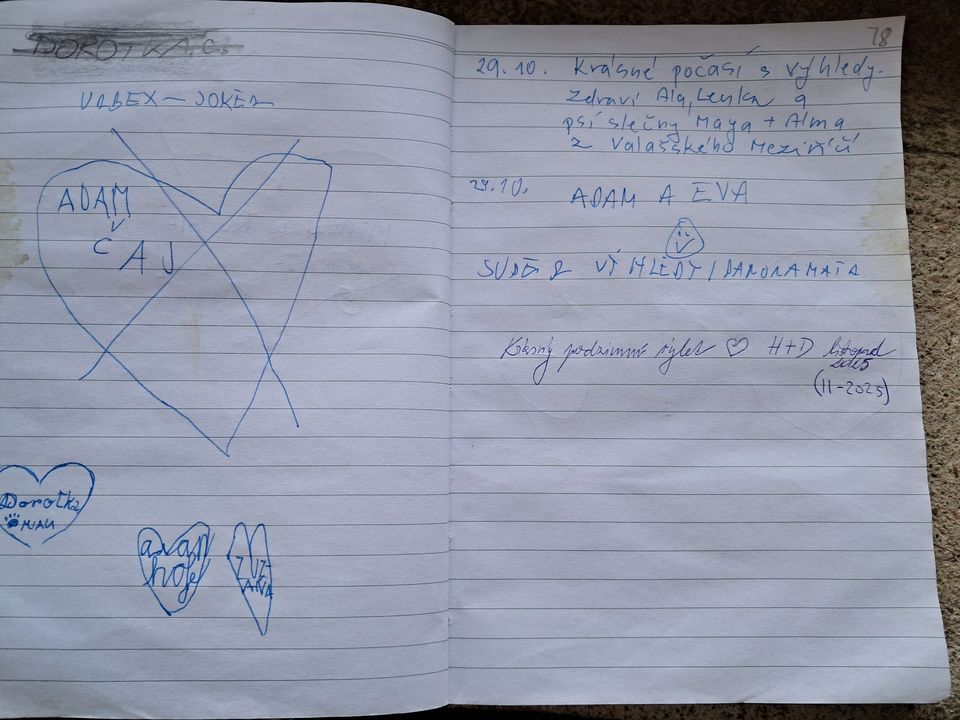 DOROTKA.C.
URBEX — JOKER
ADAM
ČAJ
Dorotka
MŇAU
hofe
ZUZ-
ANA
78
29.10. Krásné počasí s výhledy.
Zdraví Ala, Lenka a
psí slečny Maya + Alma
z Valašského Meziříčí
29.10. ADAM A EVA
VÝHLEDY/PANORAMATA
Krásný podzimní výlet ♡ H+D listopad
2025
(11-2025)